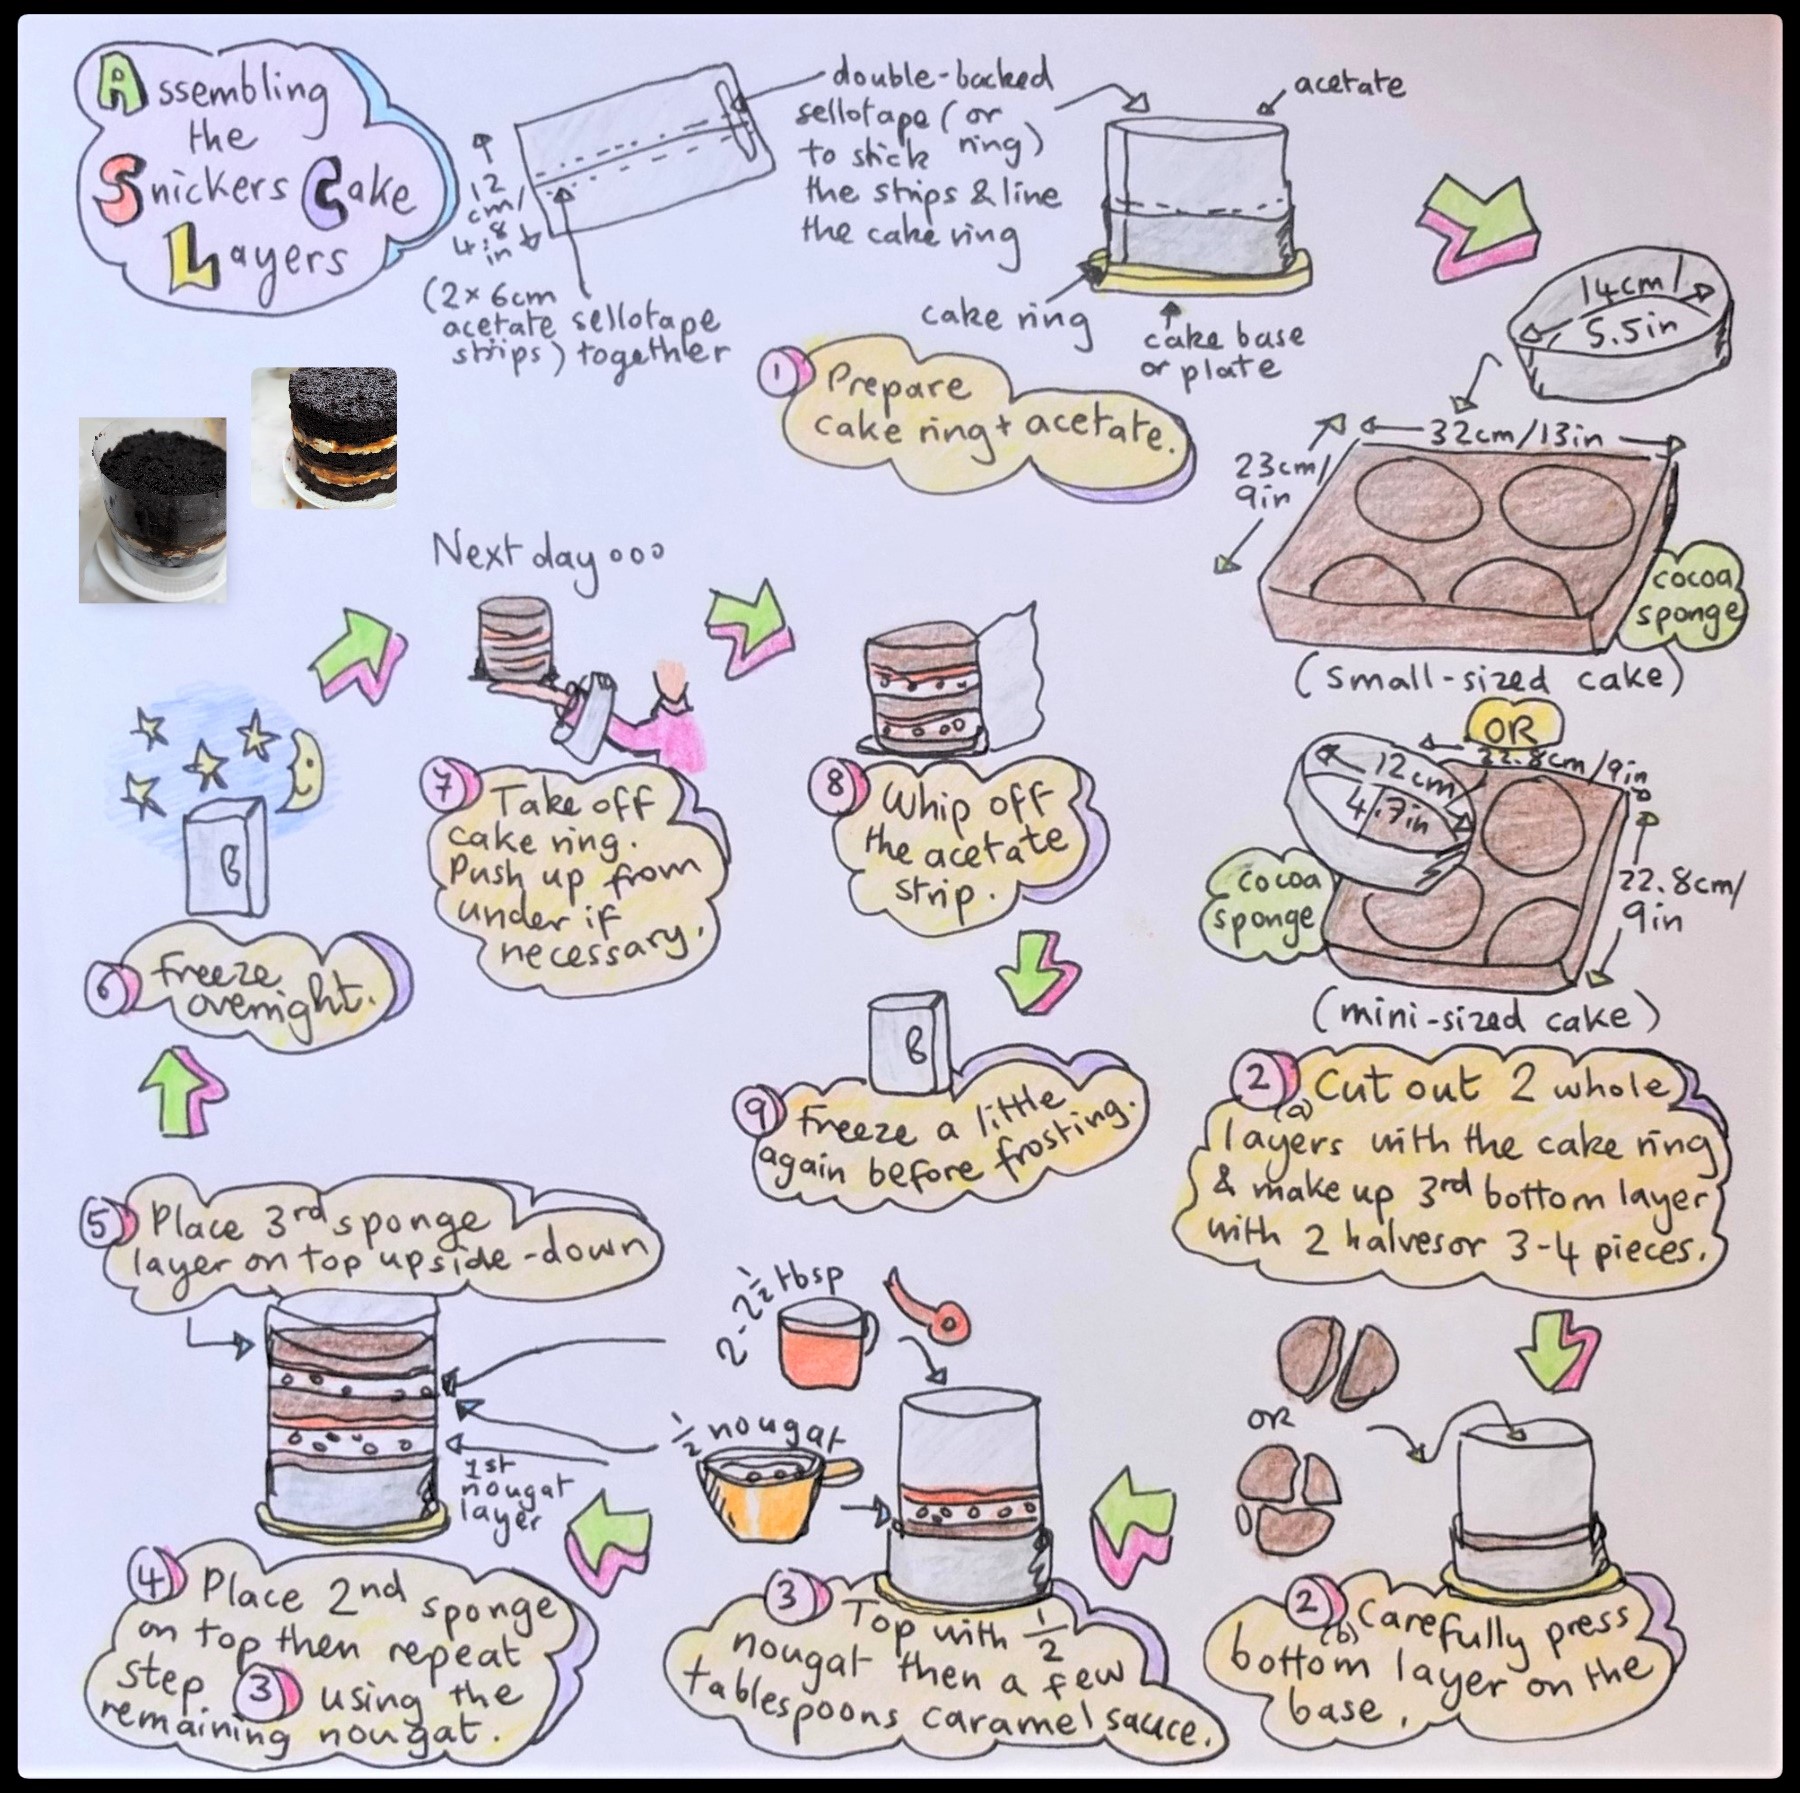 Assembling
the
Snickers Cake
Layers
12
cm/
4.8
in
(2x 6cm
acetate
strips)
sellotape
together
double-backed
sellotape (or
to stick ring)
the strips & line
the cake ring
acetate
cake ring
cake base
or plate
1 Prepare
cake ring + acetate.
14cm/
5.5in
32cm/13in
23cm/
9in
cocoa
sponge
(small-sized cake)
OR
12cm
4.7in
22.8cm/9in
22.8cm/
9in
cocoa
sponge
(mini-sized cake)
2 (a) Cut out 2 whole
layers with the cake ring
& make up 3rd bottom layer
with 2 halves or 3-4 pieces.
OR
2 (b) Carefully press
bottom layer on the
base.
2-2½ tbsp
½ nougat
3 Top with ½
nougat then a few
tablespoons caramel sauce.
1st
nougat
layer
4 Place 2nd sponge
on top then repeat
step 3 using the
remaining nougat.
5 Place 3rd sponge
layer on top upside-down
B
6 Freeze
overnight.
Next day ooo
7 Take off
cake ring.
Push up from
under if
necessary.
8 Whip off
the acetate
strip.
B
9 Freeze a little
again before frosting.